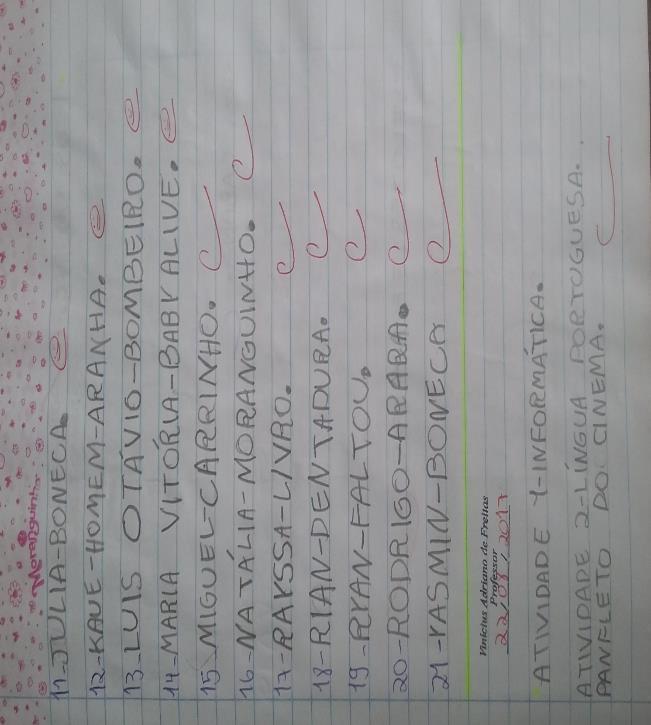 Moranguinho
11-JULIA-BONECA.
12-KAUE-HOMEM-ARANHA.
13-LUIS OTÁVIO-BOMBEIRO.
14-MARIA VITÓRIA-BABY ALIVE.
15-MIGUEL-CARRINHO.
16-NATÁLIA-MORANGUINHO.
17-RAYSSA-LIVRO.
18-RIAN-DENTADURA.
19-RYAN-FALTOU.
20-RODRIGO-ARARA.
21-YASMIN-BONECA
Vinicius Adriano de Freitas
Professor
22/08/2017
ATIVIDADE 1-INFORMÁTICA.
ATIVIDADE 2-LÍNGUA PORTUGUESA.
PANFLETO DO CINEMA.